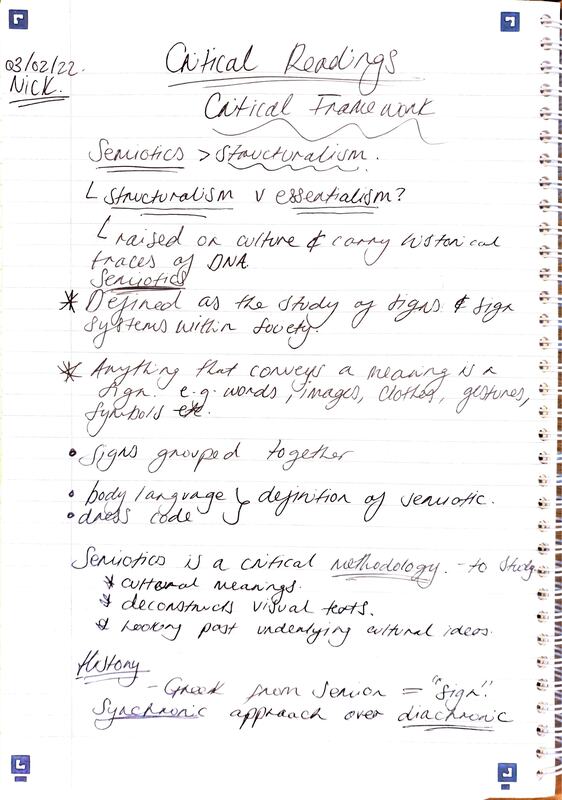 03/02/22.
Nick.
Critical Readings
Critical Framework
Semiotics > Structuralism.
Structuralism v essentialism?
raised on culture & carry historical
traces of DNA
Semiotics
* Defined as the study of signs & sign
systems within society.
* Anything that conveys a meaning is a
sign. e.g. words, images, clothes, gestures,
symbols etc.
• signs grouped together
• body language } definition of semiotic.
• dress code
Semiotics is a critical methodology. - to study
* cultural meanings.
* deconstructs visual texts.
* Looking past underlying cultural ideas.
History
- Greek from Semion = "sign".
Synchronic approach over diachronic